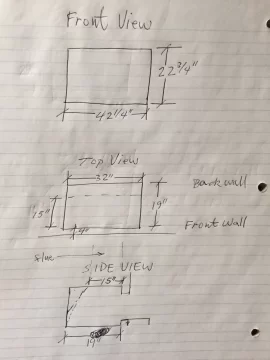 Front View
22 3/4"
42 1/4"
Top View
32"
Back wall
15"
19"
4"
Front Wall
SIDE VIEW
15"
19"